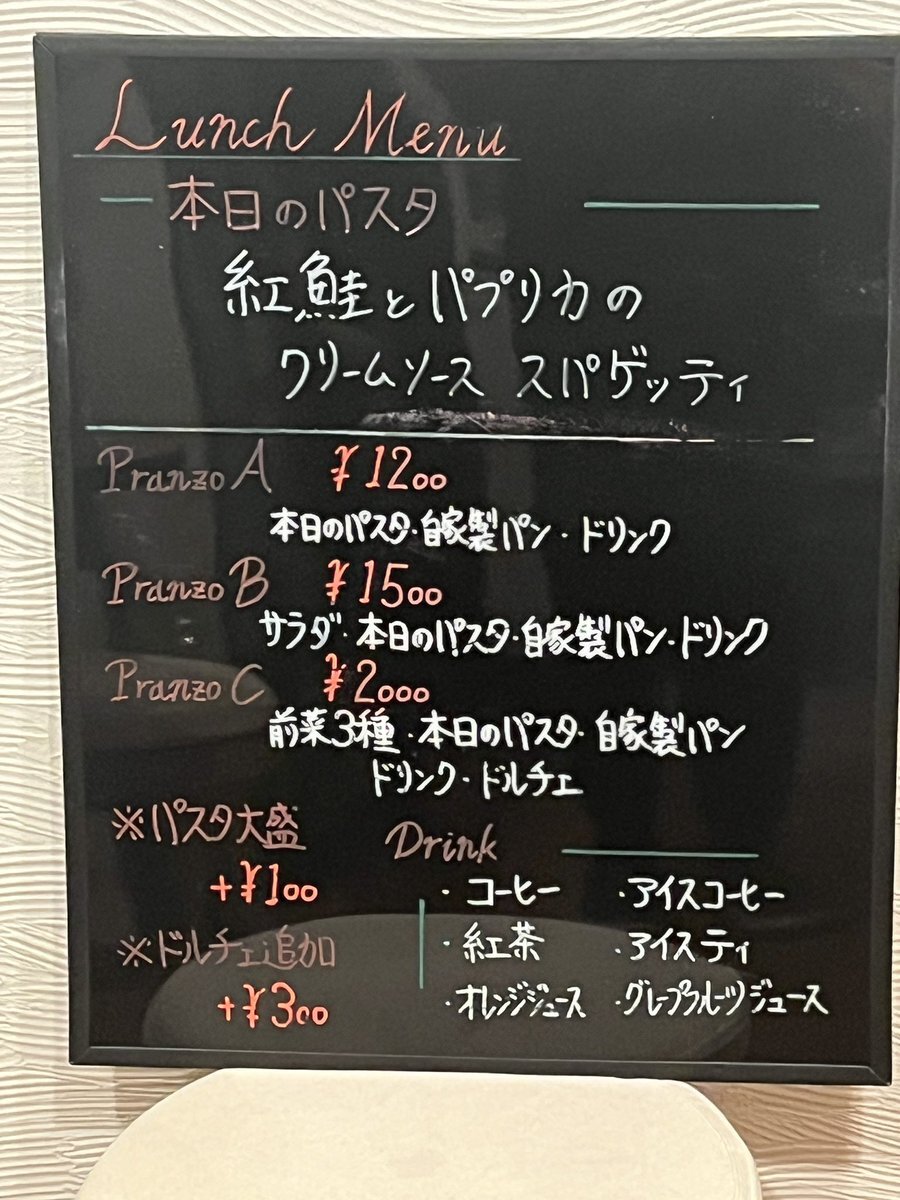 Lunch Menu
本日のパスタ
紅鮭とパプリカの
クリームソース スパゲッティ
Pranzo A ¥1200
本日のパスタ・自家製パン・ドリンク
Pranzo B ¥1500
サラダ・本日のパスタ・自家製パン・ドリンク
Pranzo C ¥2000
前菜3種・本日のパスタ・自家製パン
ドリンク・ドルチェ
※パスタ大盛
+¥100
※ドルチェ追加
+¥300
Drink
・コーヒー ・アイスコーヒー
・紅茶 ・アイスティ
・オレンジジュース ・グレープフルーツジュース